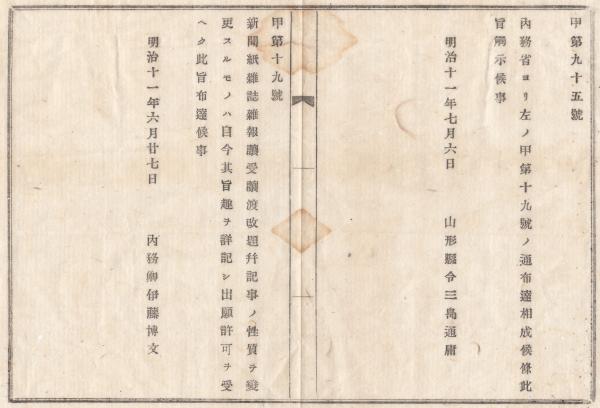 甲第九十五號
內務省ヨリ左ノ甲第十九號ノ通布達相成候條此
旨觸示候事
明治十一年七月六日 山形縣令三島通庸
甲第十九號
新聞紙雜誌雜報讓受讓渡改題幷記事ノ性質ヲ變
更スルモノハ自今其旨趣ヲ詳記シ出願許可ヲ受
ヘク此旨布達候事
明治十一年六月廿七日 內務卿伊藤博文